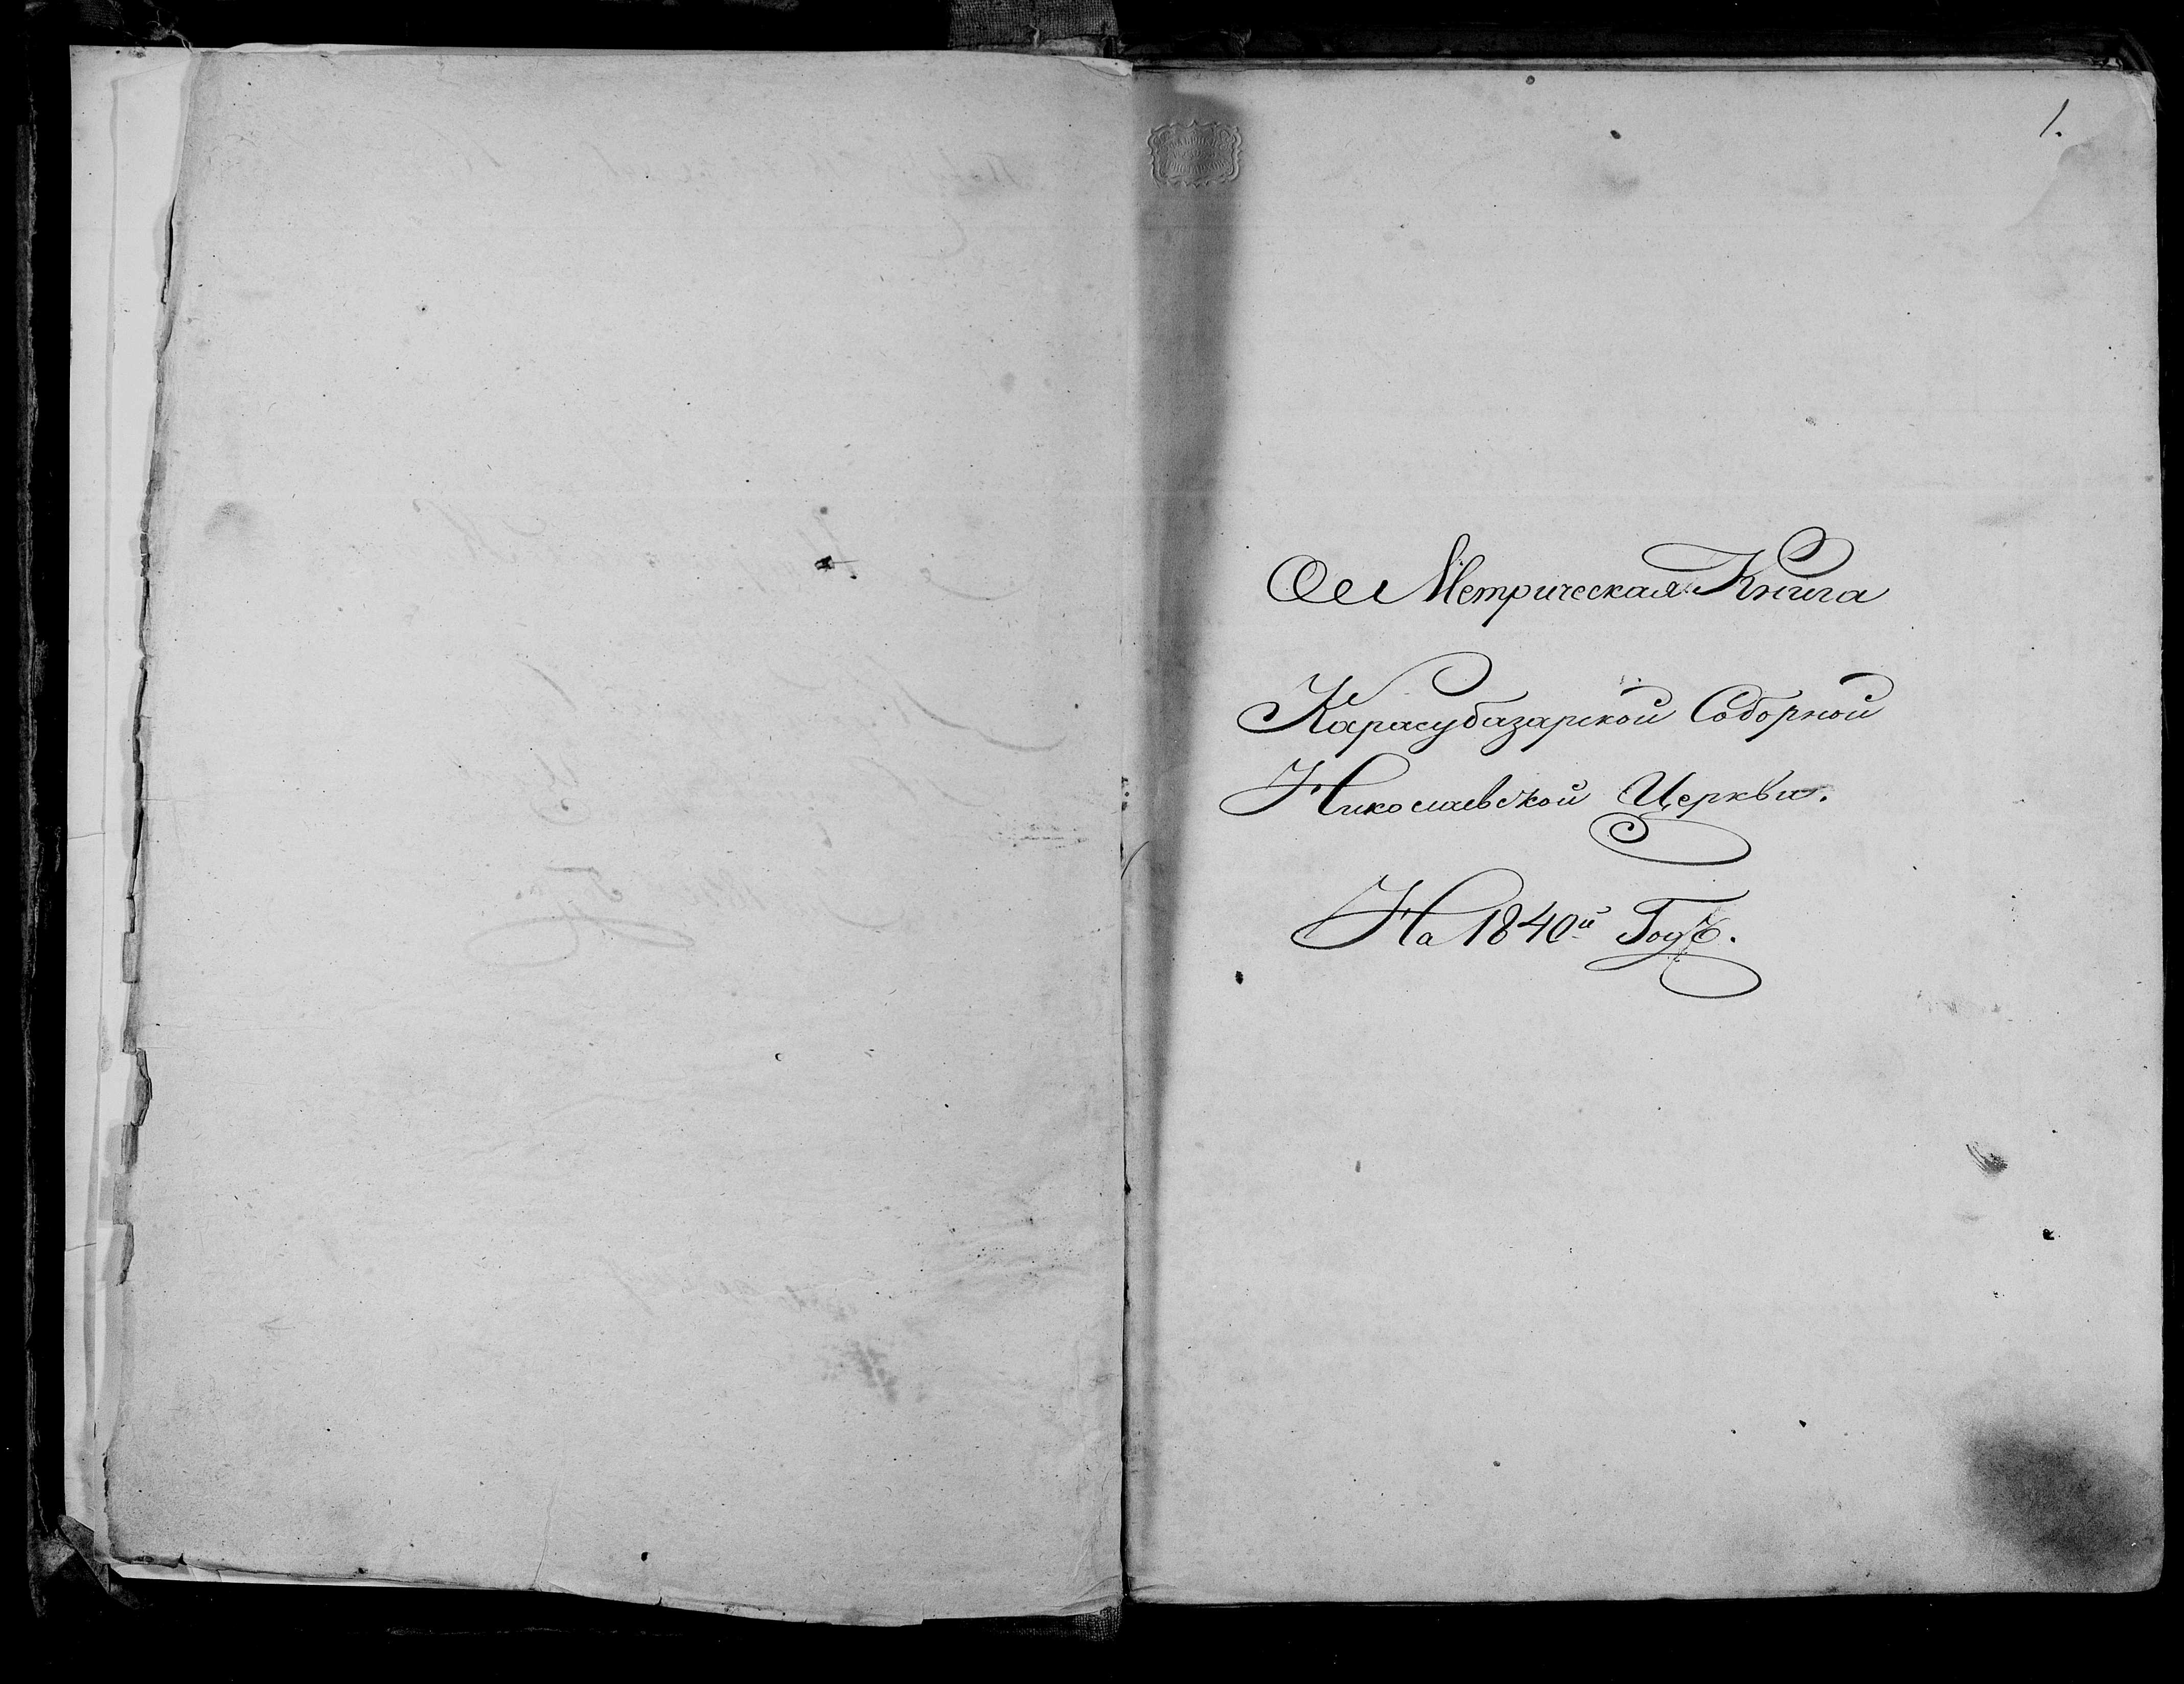 1.
Метрическая Книга
Карасубазарской Соборной
Николаевской Церкви.
На 1840й Годъ.